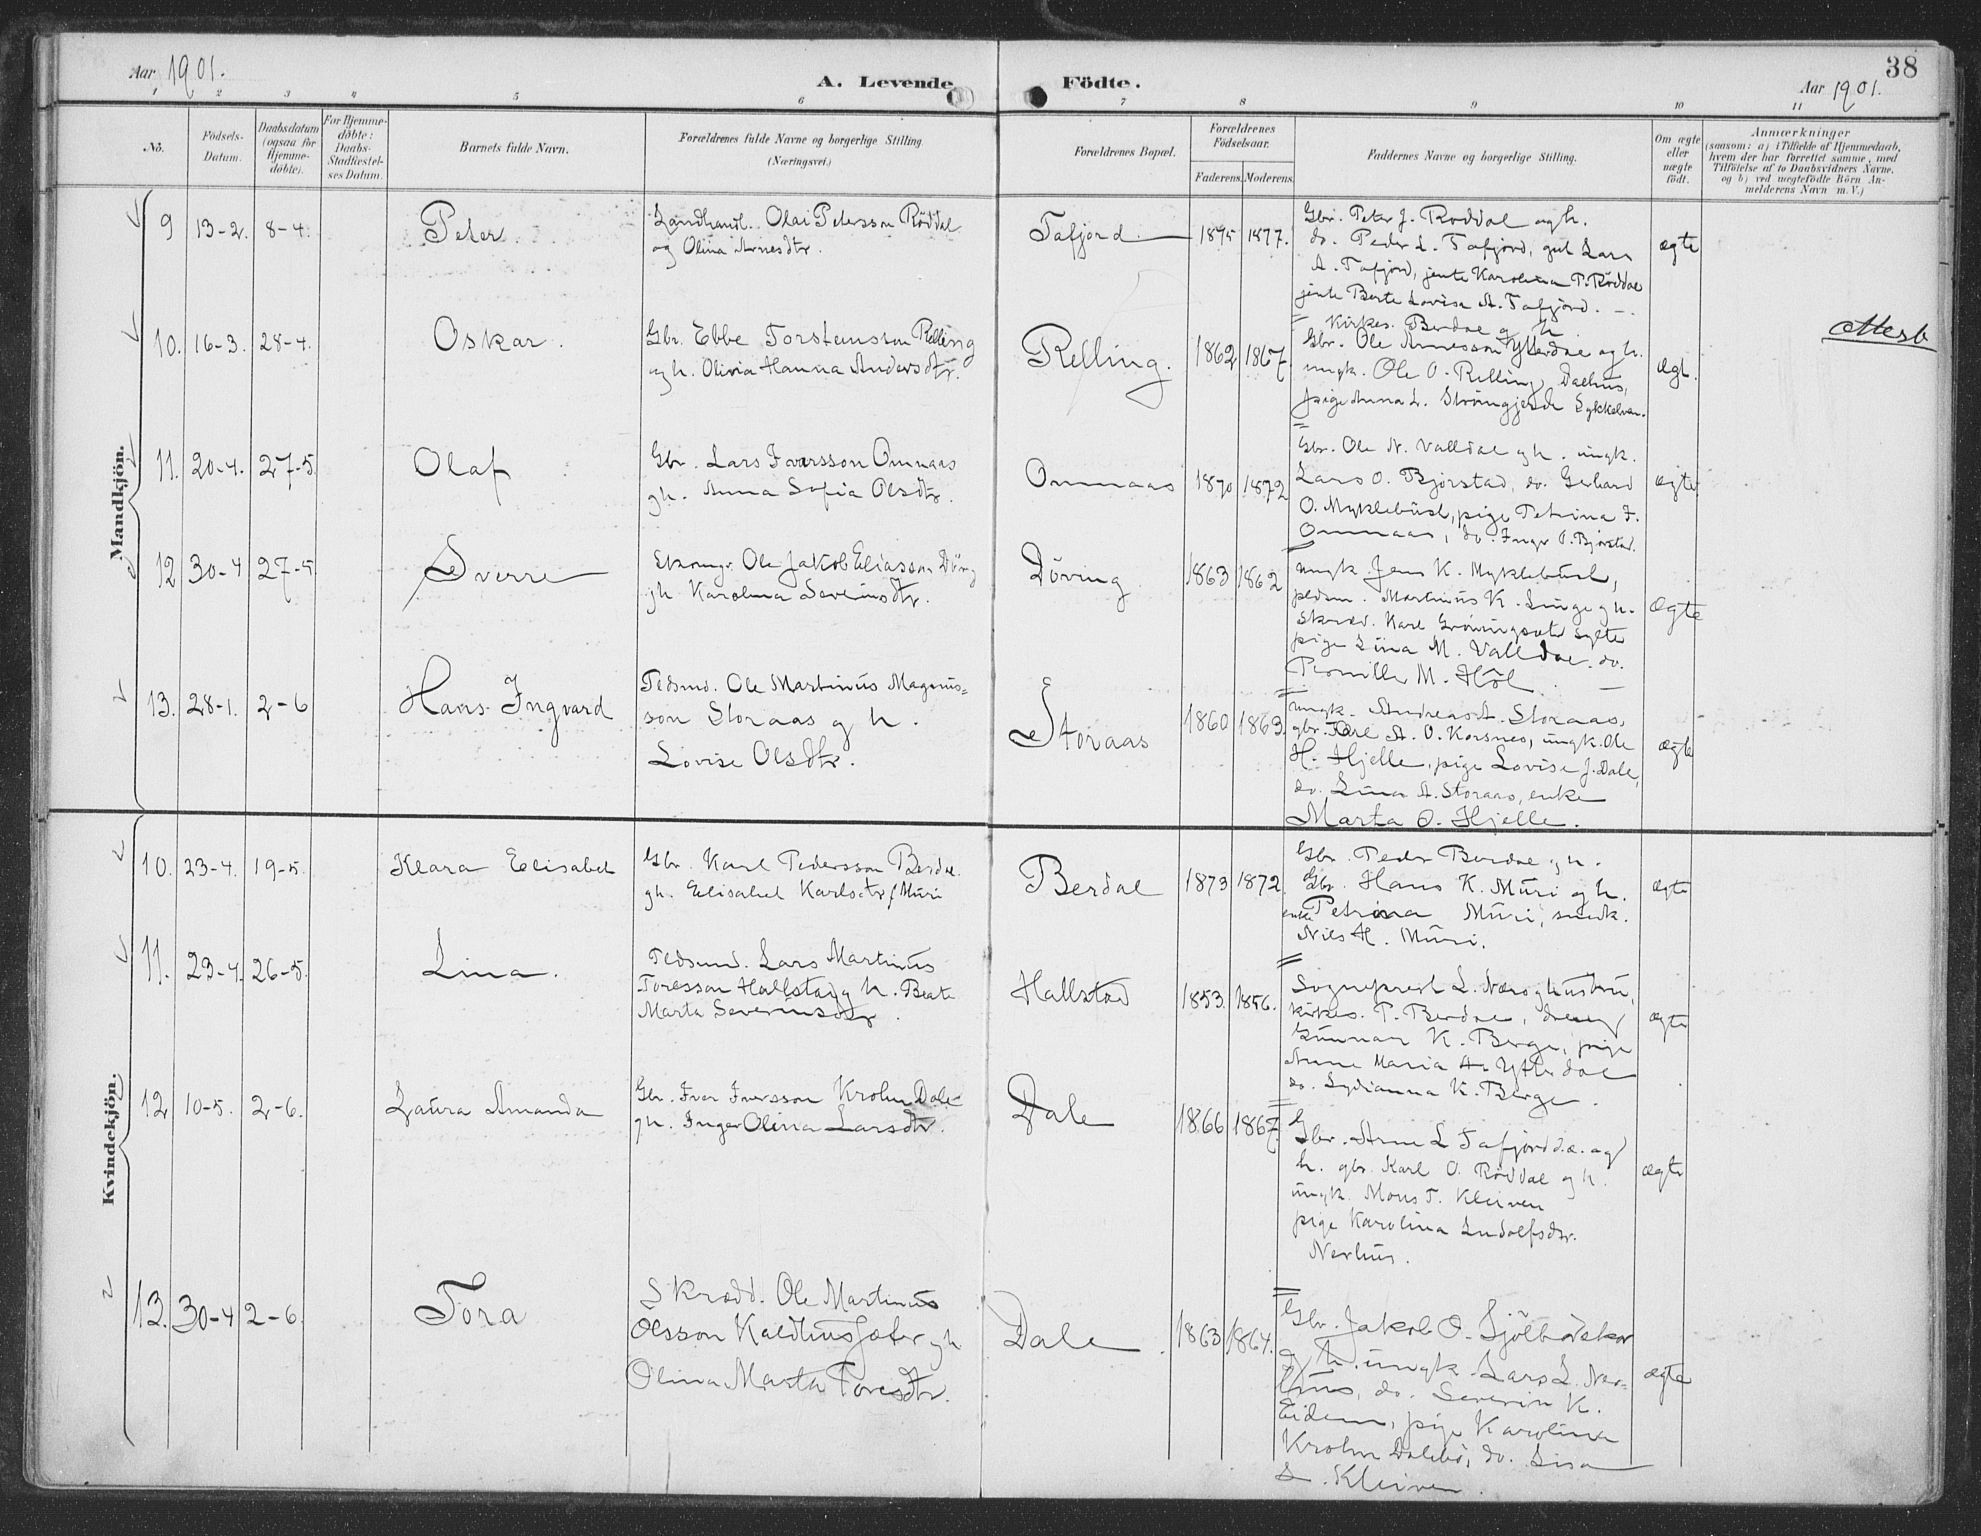 Aar 1901.
A. Levende Födte.
Aar 1901.
38
1 2 3 4 5 6 7 8 9 10 11
No.
Födsels-Datum.
Daabsdatum (ogsaa for Hjemme-döbte).
For Hjemme-döbte: Daabs-Stadfæstel-ses Datum.
Barnets fulde Navn.
Forældrenes fulde Navne og borgerlige Stilling (Næringsvei.)
Forældrenes Bopæl.
Forældrenes Födselsaar.
Faderens. Moderens.
Faddernes Navne og borgerlige Stilling.
Om ægte eller uægte födt.
Anmærkninger
(saasom: a) i Tilfælde af Hjemmedaab,
hvem der har forrettet samme, med
Tilföielse af to Daabsvidners Navne.
og b) ved uægtefödte Börn An-
melderens Navn m. V.)
Mandkjön.
9 13-2. 8-4. Peter.
Landhandl. Olai Petersson Röddal
og Olina Arnesdtr.
Tafjord 1877.
Gbr. Peter J. Röddal og h.
do. Peder L. Tafjord, gut Lars
A. Tafjord, jente Karolina P. Röddal
jente Berte Lovise A. Tafjord.
ægte
10. 16-3. 28-4. Oskar.
Gbr. Ebbe Torsteinson Relling
og h. Olivia Hanna Andersdtr.
Relling. 1862 1867.
Kirkes. Berdal og h.
Gbr. Ole Arnesson Ytterdal og h.
ungk. Ole O. Relling, Dalhus,
pige Anna L.
Ægt.
Attest
11. 20-4. 27-5. Olaf
Gbr. Lars Ivarsson Ommaas
gh. Anna Sofia Olsdtr.
Ommaas 1870 1872
Gbr. Ole N. Valldal gh. ungk.
Lars O. Bjørstad, do. Gerhard
O. Myklebust, pige Petrina I.
Ommaas, do. Inger O. Bjørstad.
ægte
12 30-4 27-5 Sverre
Ole Jakob Eliasson Döving
gh. Karolina Severinsdtr.
Döving 1863 1862
ungk. Jens K. Myklebust,
Martinus K. Linge gh.
Skræd. Karl Grönningsæter Sylte
pige Lina M. Valldal. do.
Pernille M. Höl.
Ægte
13. 28-1. 2-6 Hans Ingvard
Pedsmd. Ole Martinus Magnus=
son Storaas g h.
Lovise Olsdtr.
Storaas 1860 1863.
ungk. Andreas A. Storaas,
gbr. A. O. Korsnes, ungk. Ole
H. Hjelle, pige Lovise J. Dale,
do. Lina A. Storaas, enke
Marta O. Hjelle.
ægte
Kvindekjön.
10. 23-4. 19-5. Klara Elisabet
Gbr. Karl Pedersson Berdal
gh. Elisabet Karlsdtr f Muri
Berdal 1873 1872.
Gbr. Peder Berdal gh.
Gbr. Hans K. Muri og h.
enke Petrina Muri, smedk.
Nils H. Muri.
ægte
11. 23-4. 26-5. Lina.
Pedsmd. Lars Martinus
Toresson Hallstad g h. Beate
Marta Severinsdtr.
Hallstad 1853. 1856.
Sogneprest L. Næro g hustru,
kirkes. P. Berdal, dreng
Gunnar K. Berge, pige
Anne Maria A. Ytterdal
do. Lydianna K. Berge.
ægte
12 10-5. 2-6. Laura Amanda
Gbr. Ivar Iversson Krohn Dale
gh. Inger Olina Larsdtr.
Dale 1866 1867.
Gbr. Arne L Tafjord d.æ. og
h. gbr. Karl O. Röddal og h.
ungk. Mons T. Kleiven
pige Karolina Ludolfsdtr.
Nerhus.
ægte
13. 30-4 2-6. Tora
Skrædd. Ole Martinus
Olsson Kaldhusseter gh
Olina Marta Toresdtr.
Dale. 1863 1864.
Gbr. Jakob O.
g h. ungk. Lars L. Ner=
hus, do. Severin K.
Eidem, pige Karolina
Krohn Dalebö, do. Lisa
L. Kleiven.
ægte